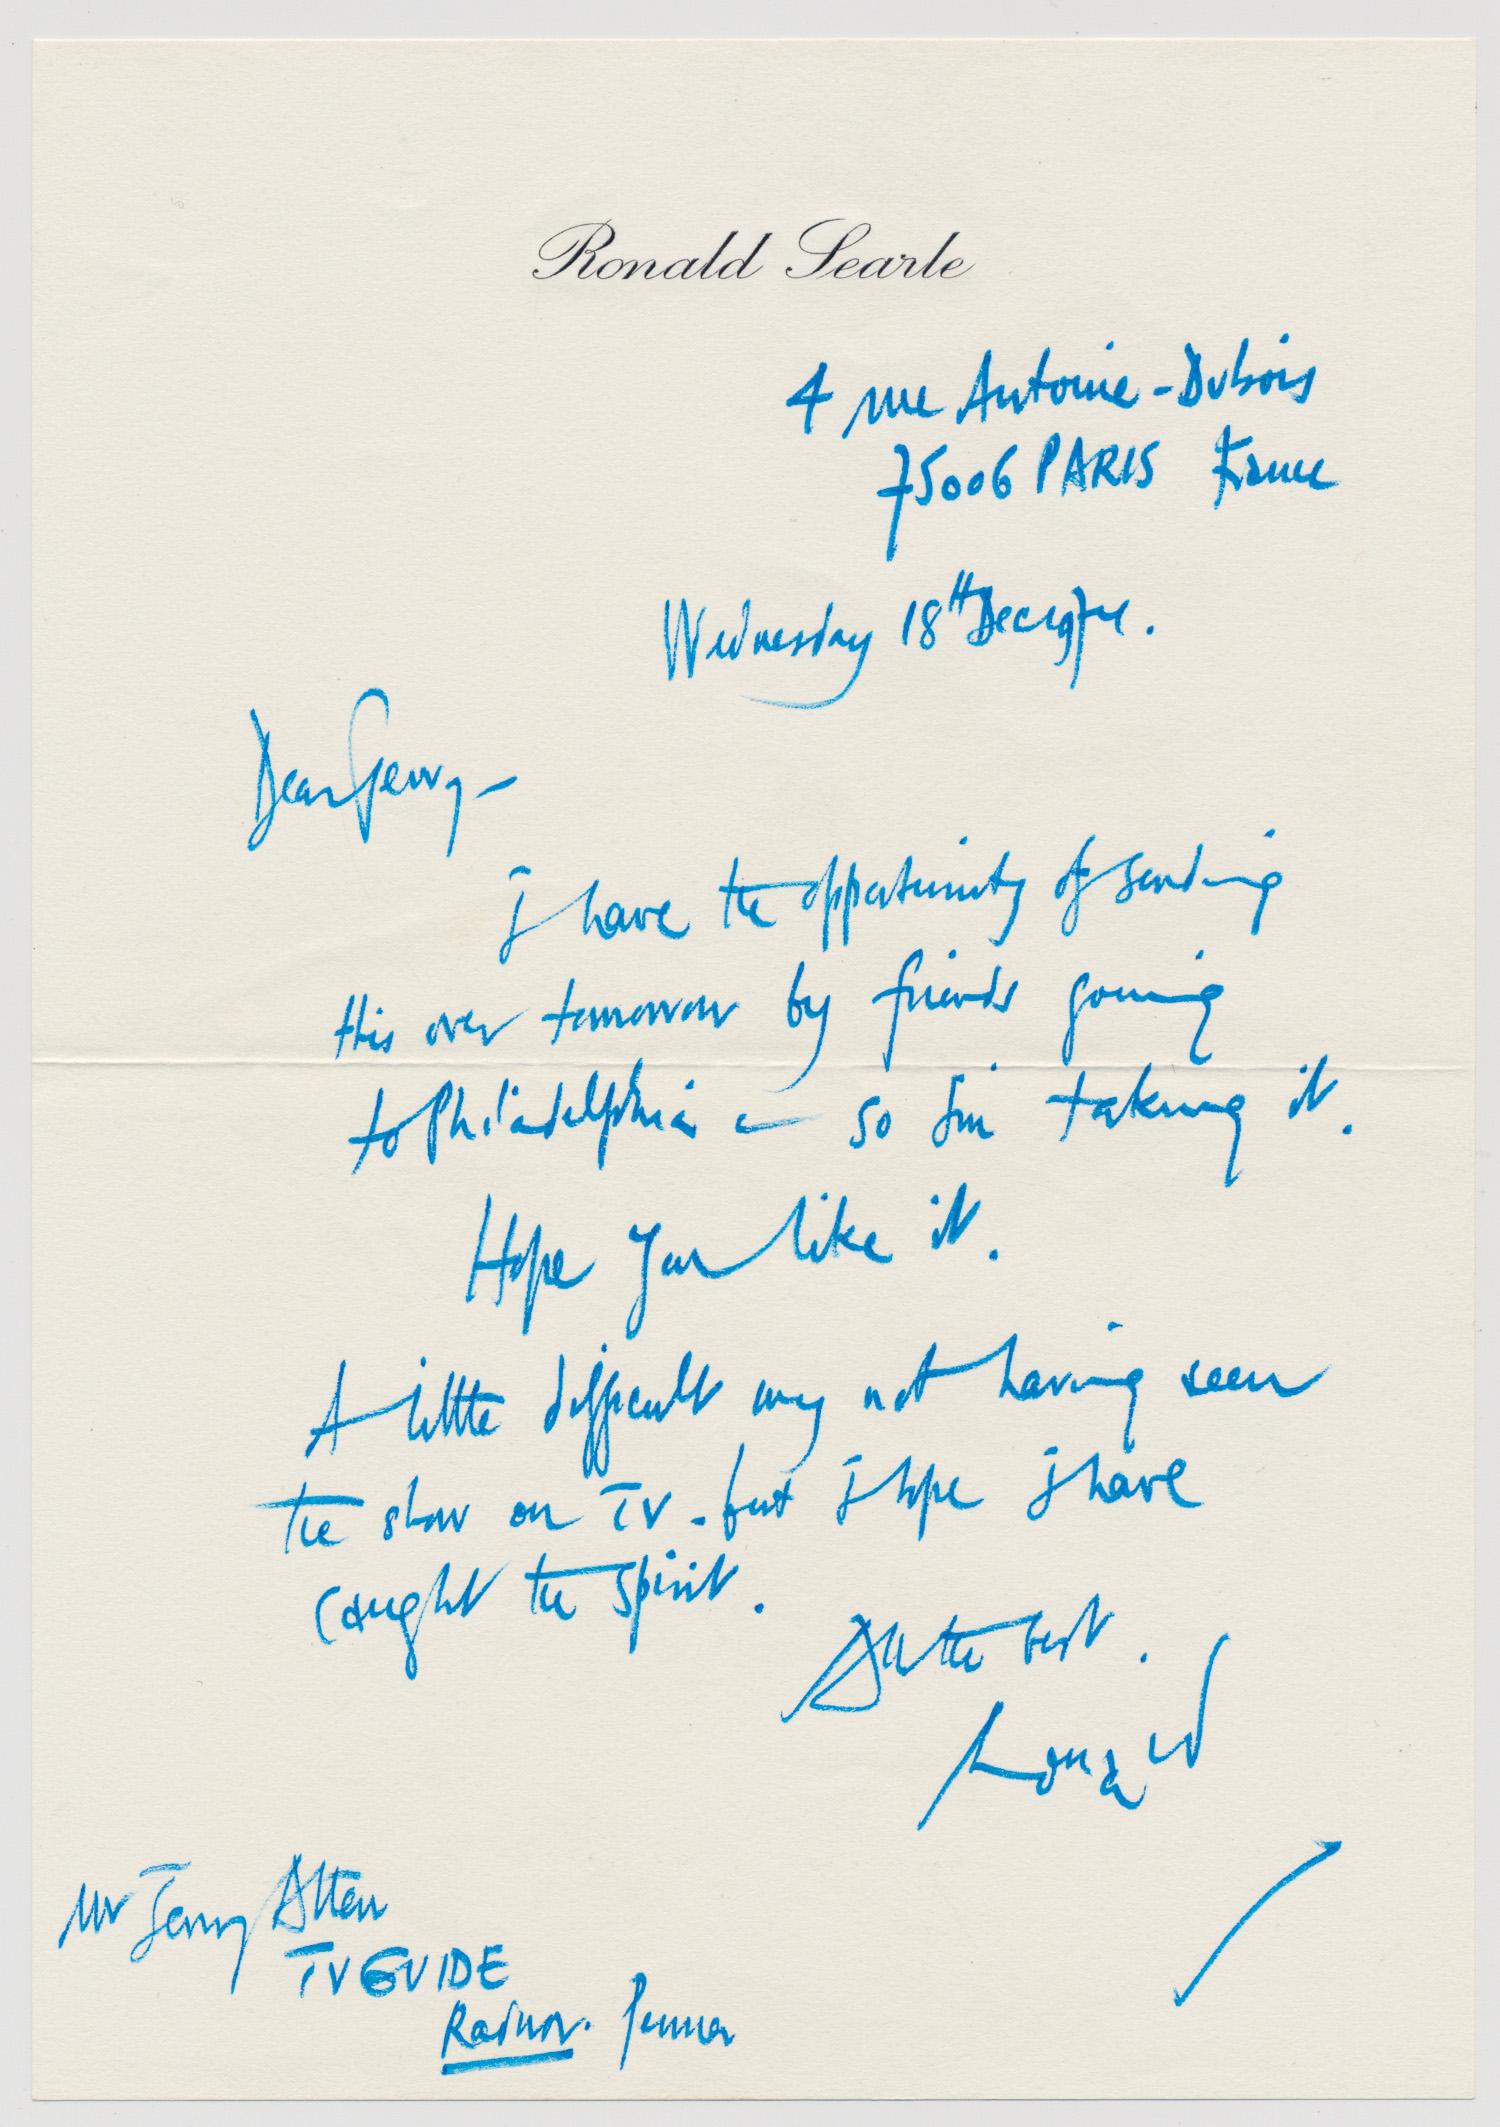 Ronald Searle
4 rue Antoine-Dubois
75006 PARIS France
Wednesday 18th Dec 1974.
Dear Jerry -
I have the opportunity of sending
this over tomorrow by friends going
to Philadelphia — so I'm taking it.
Hope you like it.
A little difficult my not having seen
the show on TV - but I hope I have
caught the spirit.
All the best.
Ronald
Mr Jerry Alten
TV GUIDE
Radnor. Penna